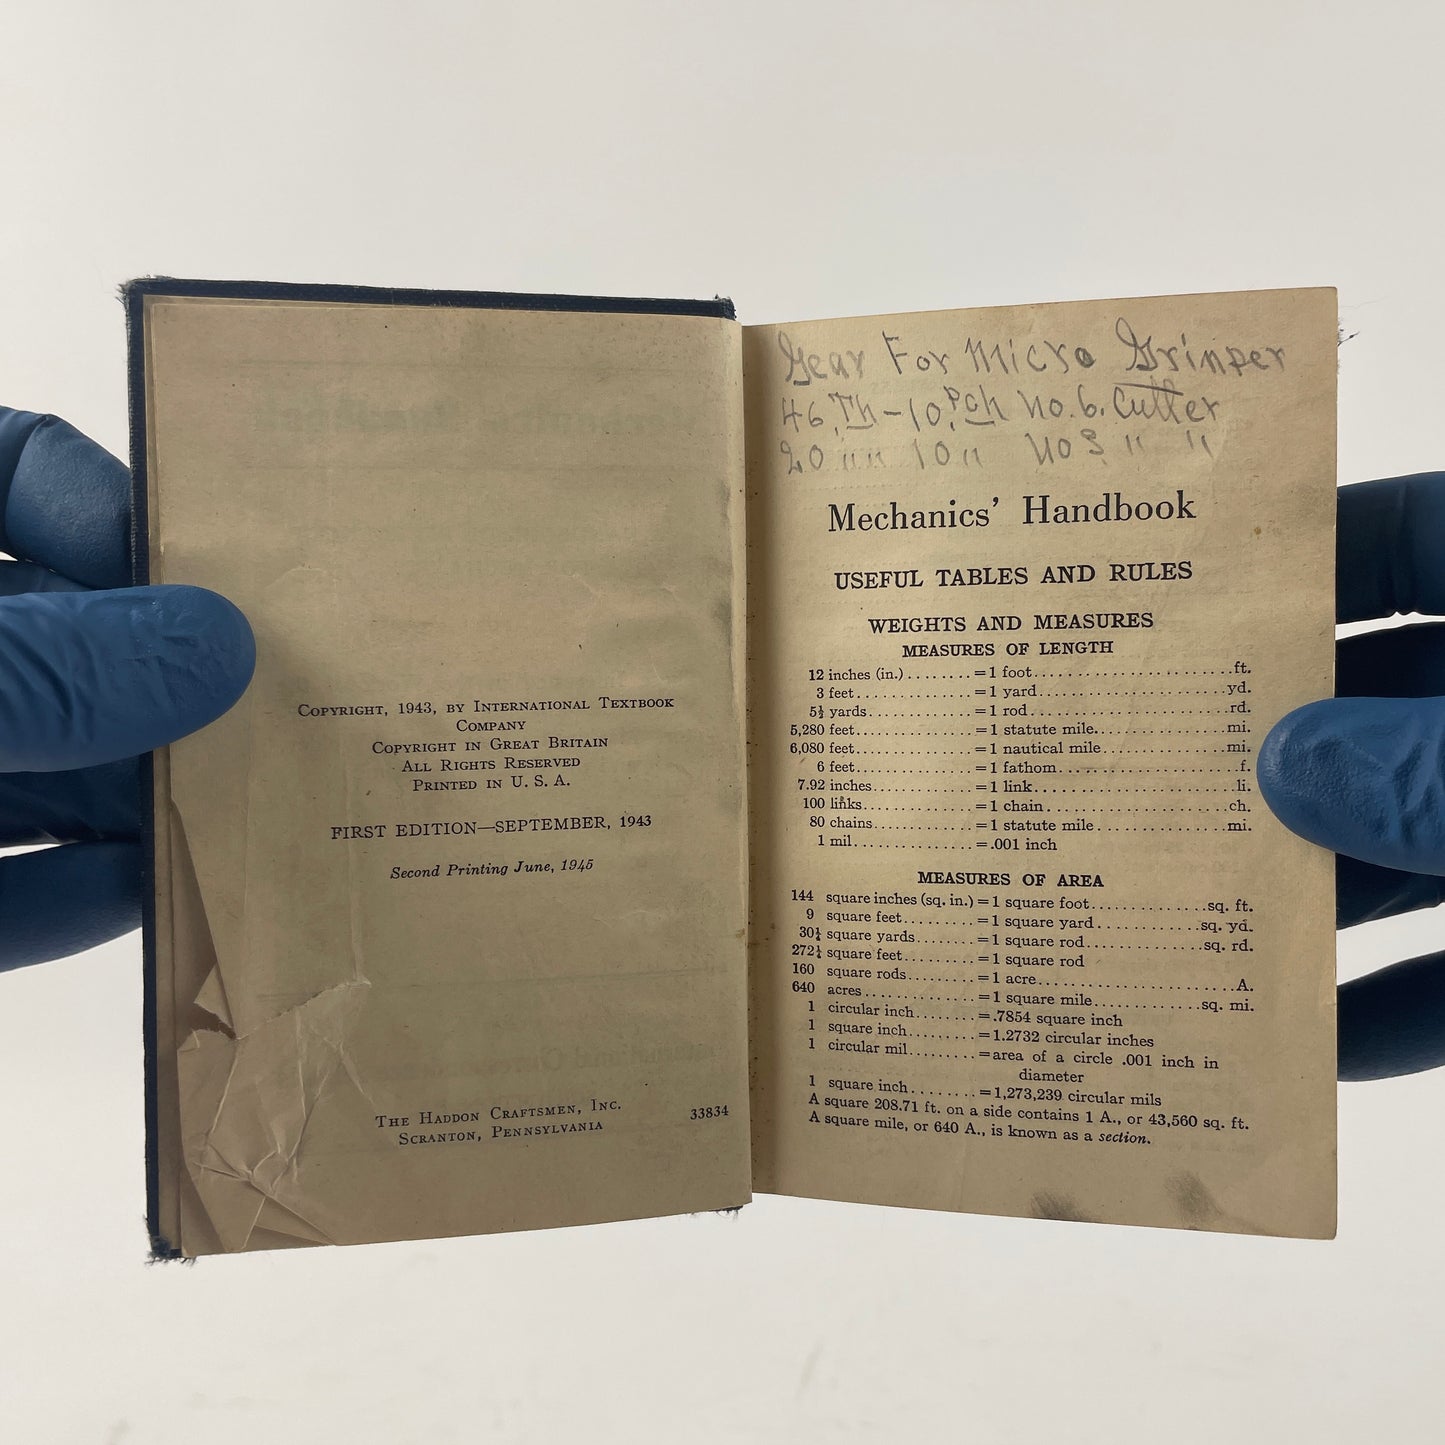 COPYRIGHT, 1943, BY INTERNATIONAL TEXTBOOK
COMPANY
COPYRIGHT IN GREAT BRITAIN
ALL RIGHTS RESERVED
PRINTED IN U. S. A.
FIRST EDITION—SEPTEMBER, 1943
Second Printing June, 1945
THE HADDON CRAFTSMEN, INC.
SCRANTON, PENNSYLVANIA
33834
Gear For Micro Grinper
46, Th - 10, Pch No. 6. Cutter
20 " " 10 " No " "
Mechanics' Handbook
USEFUL TABLES AND RULES
WEIGHTS AND MEASURES
MEASURES OF LENGTH
12 inches (in.)........=1 foot..........................ft.
3 feet..............=1 yard..........................yd.
5½ yards............=1 rod...........................rd.
5,280 feet..............=1 statute mile..................mi.
6,080 feet..............=1 nautical mile.................mi.
6 feet..............=1 fathom........................f.
7.92 inches............=1 link..........................li.
100 links.............=1 chain.........................ch.
80 chains............=1 statute mile..................mi.
1 mil...............=.001 inch
MEASURES OF AREA
144 square inches (sq. in.)=1 square foot..............sq. ft.
9 square feet.........=1 square yard.............sq. yd.
30¼ square yards........=1 square rod..............sq. rd.
272¼ square feet.........=1 square rod
160 square rods.........=1 acre.........................A.
640 acres..............=1 square mile.............sq. mi.
1 circular inch........=.7854 square inch
1 square inch.........=1.2732 circular inches
1 circular mil.........=area of a circle .001 inch in
diameter
1 square inch.........=1,273,239 circular mils
A square 208.71 ft. on a side contains 1 A., or 43,560 sq. ft.
A square mile, or 640 A., is known as a section.